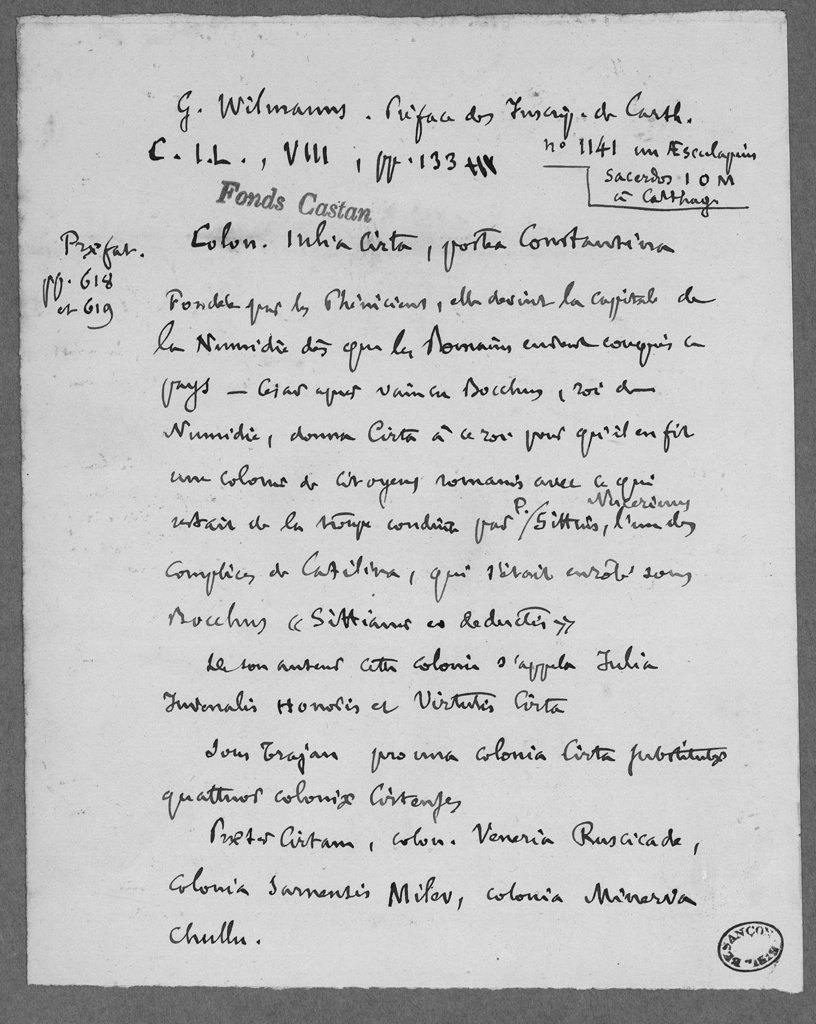 G. Wilmanns. Préface des Inscrip. de Carth.
C. I. L., VIII, pp. 133
n° 1141 un Æsculapius
sacerdos I O M
à Carthage
Fonds Castan
Præfat.
pp. 618
et 619
Colon. Iulia Cirta, postea Constantina
Fondée par les Phéniciens, elle devint la capitale de
la Numidie dès que les Romains eurent conquis ce
pays — César après vaincu Bocchus, roi de
Numidie, donna Cirta à ce roi pour qu'il en fit
une colonie de citoyens romains avec ce qui
Nucerinus
restait de la troupe conduite par P. Sittius, l'un des
complices de Catilina, qui s'était enrôlé sous
Bocchus « Sittianis eo deductis »
De son auteur cette colonie s'appela Julia
Juvenalis Honoris et Virtutis Cirta
Sous Trajan pro una colonia Cirta substitutæ
quattuor coloniæ Cirtenses
Præter Cirtam, colon. Veneria Ruscicade,
colonia Sarnensis Milev, colonia Minervia
Chullu.
BESANÇON